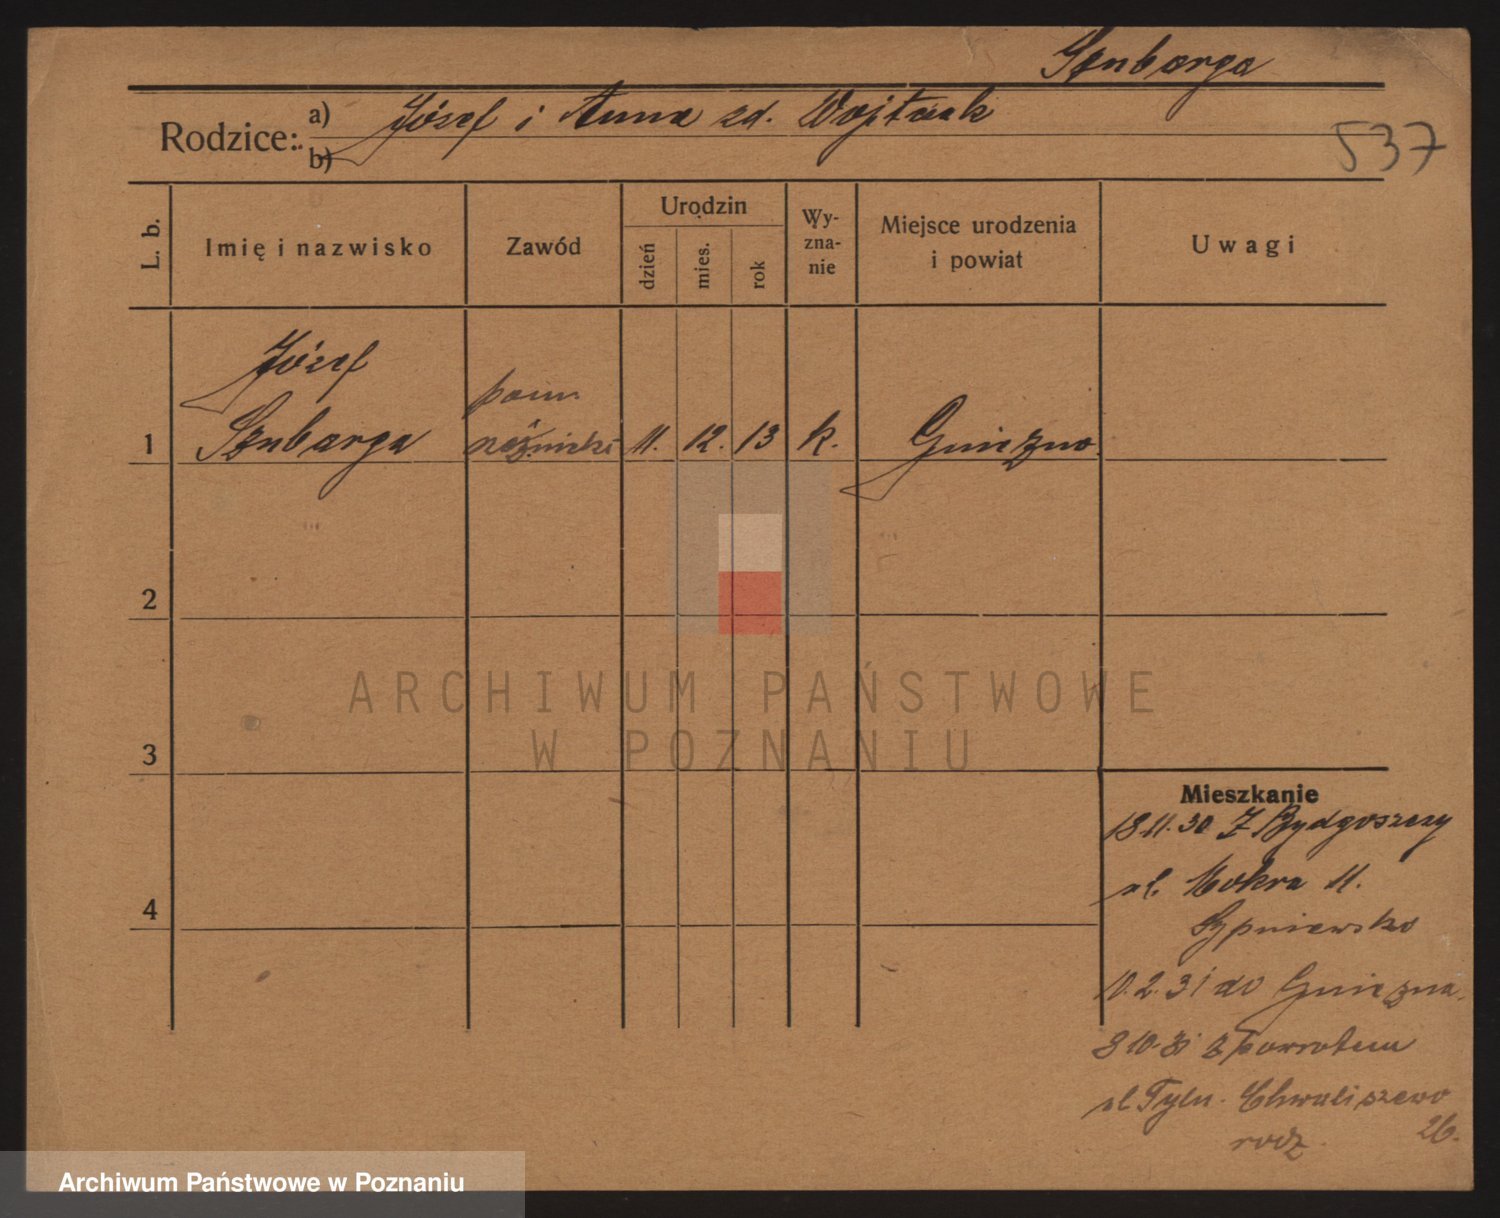 Szubarga
Rodzice: a) Józef i Anna zd. Wojtczak
b)
537
L. b.
Imię i nazwisko
Zawód
Urodzin
dzień
mies.
rok
Wy-
zna-
nie
Miejsce urodzenia
i powiat
Uwagi
Józef
pom.
1 Szubarga rzeźnicki 11. 12. 13 k. Gniezno
2
3
4
Mieszkanie
18.11.30 z Bydgoszczy
ul. Mokra 11.
Sypniewsko
10.2.31 do Gniezna.
3 10.31 z powrotem
ul Tyln. Chwaliszewo
rodz. 26.
ARCHIWUM PAŃSTWOWE
W POZNANIU
Archiwum Państwowe w Poznaniu